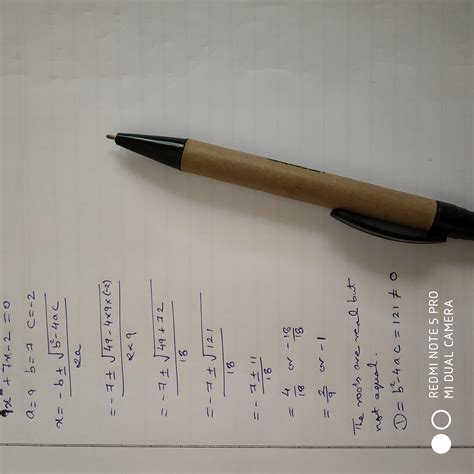 9x² + 7x - 2 = 0
a = 9 b = 7 c = -2
x = -b ± √b²-4ac / 2a
= -7 ± √49 - 4×9×(-2) / 2×9
= -7 ± √49 + 72 / 18
= -7 ± √121 / 18
= -7 ± 11 / 18
= 4/18 or -18/18
= 2/9 or -1
The roots are real but
not equal.
D = b² - 4ac = 121 ≠ 0
REDMI NOTE 5 PRO
MI DUAL CAMERA